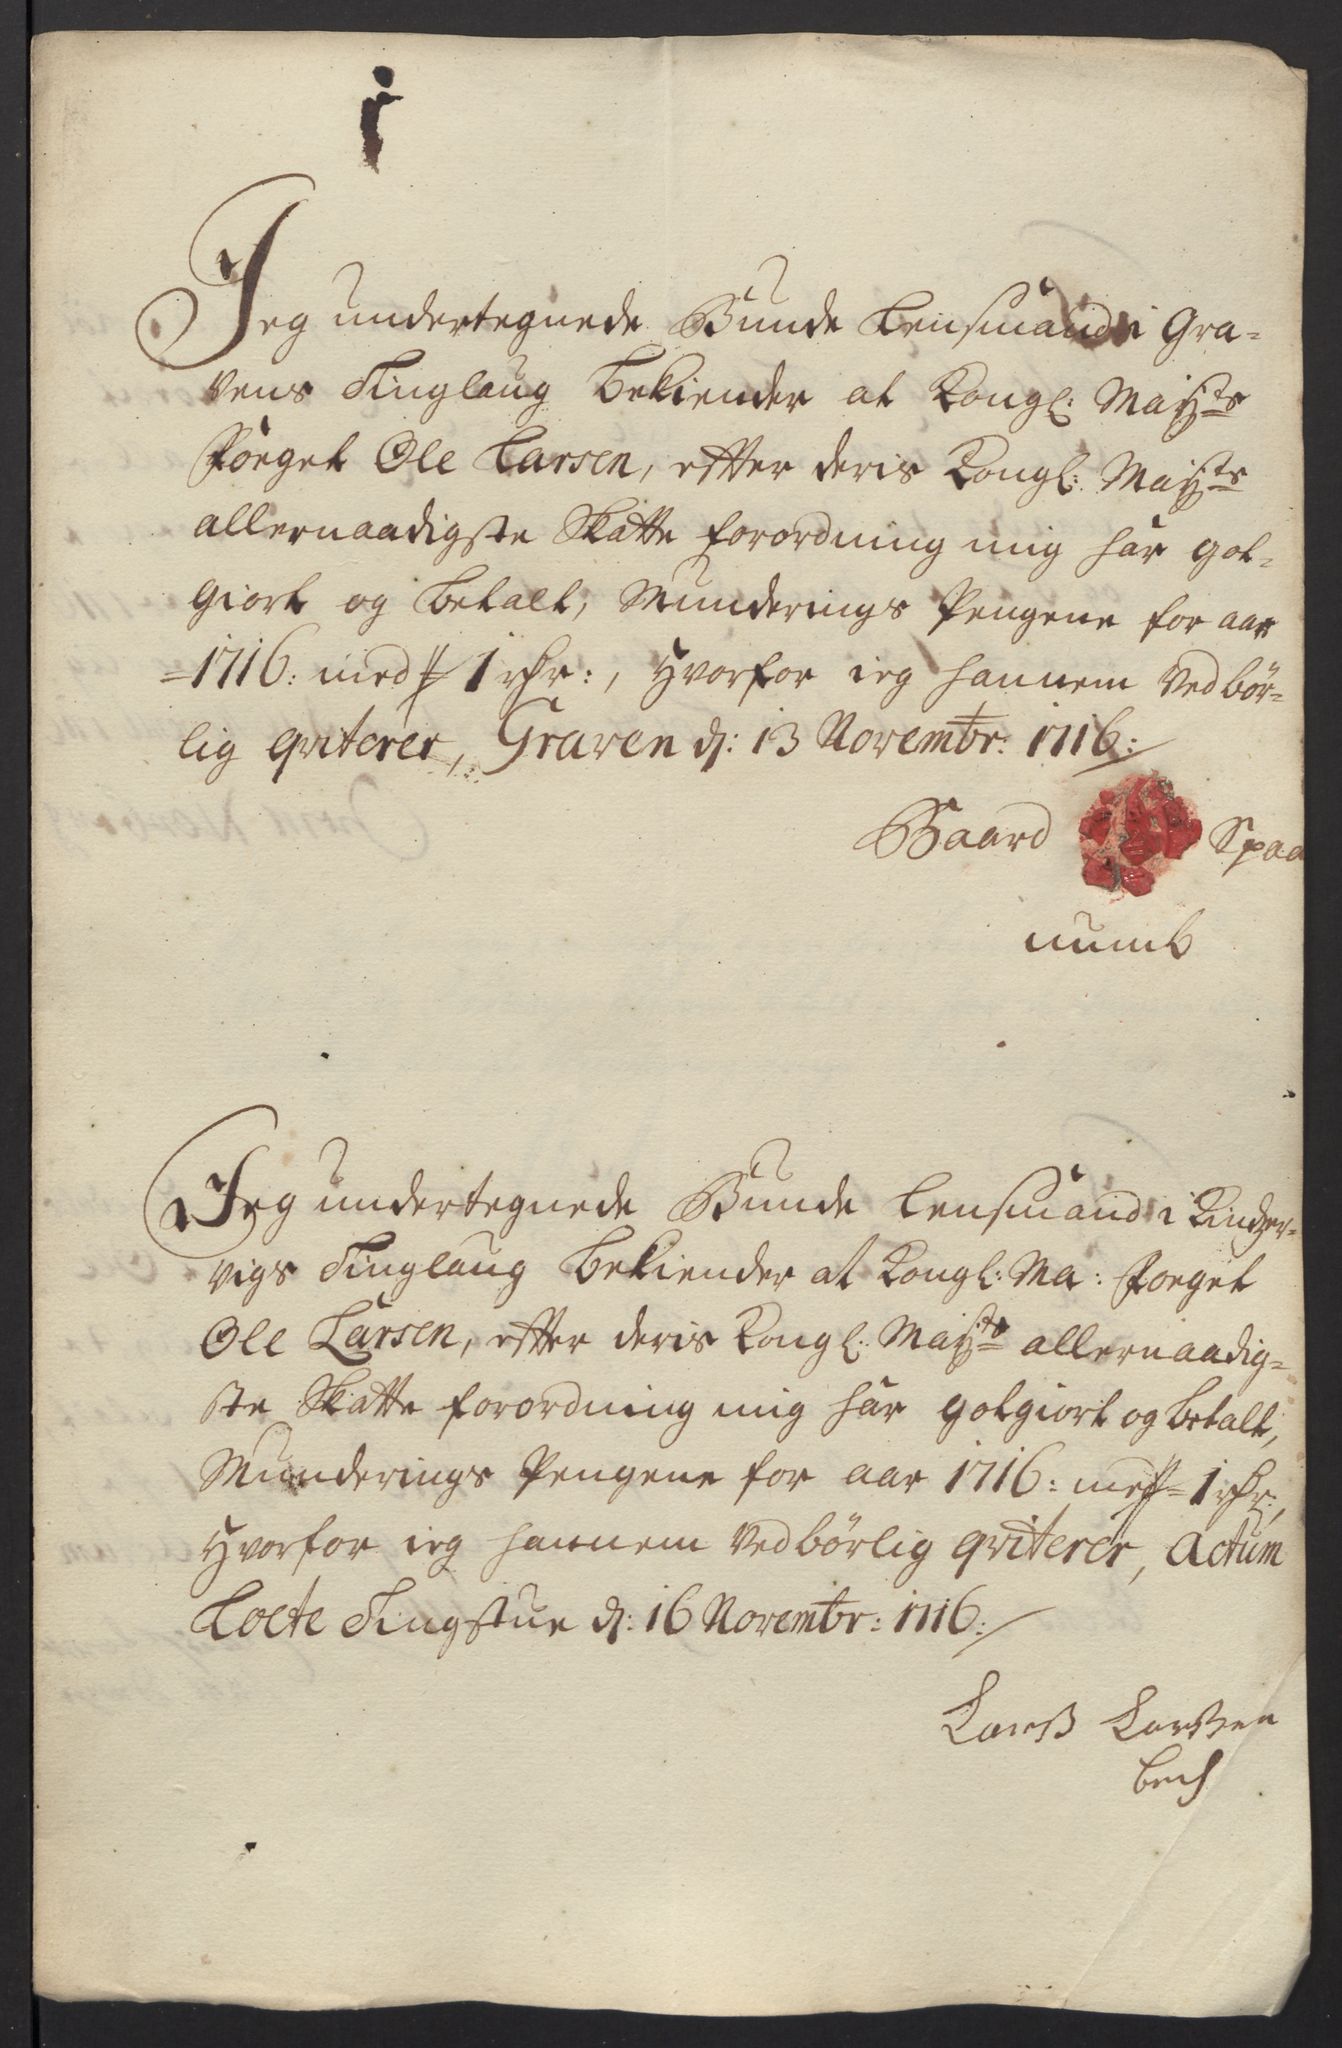 Jeg undertegnede Bunde Lensmand i Gra-
vens Tinglaug bekiender at Kongl: Maÿts
Foeget Ole Larsen, efter deris Kongl: Maÿts
allernaadigste Skatte forordning mig har got-
giort og betalt, Munderings Pengene for aar
1716: med 1 rdr:, hvorfor ieg hannem vedbør-
lig qviterer, Graven d: 13 Novembr: 1716:/
Baard Spaa
numb
Jeg undertegnede Bunde Lensmand i Kindzer-
vigs Tinglaug bekiender at Kongl: Ma: foeget
Ole Larsen, efter deris Kongl: Maÿts allernaadig-
ste Skatte forordning mig har gotgiort og betalt,
Munderings Pengene for aar 1716: med 1 rdr:,
hvorfor ieg hannem vedbørlig qviterer, Actum
Lote Tingstue d: 16 Novembr: 1716:/
Larß Larßen